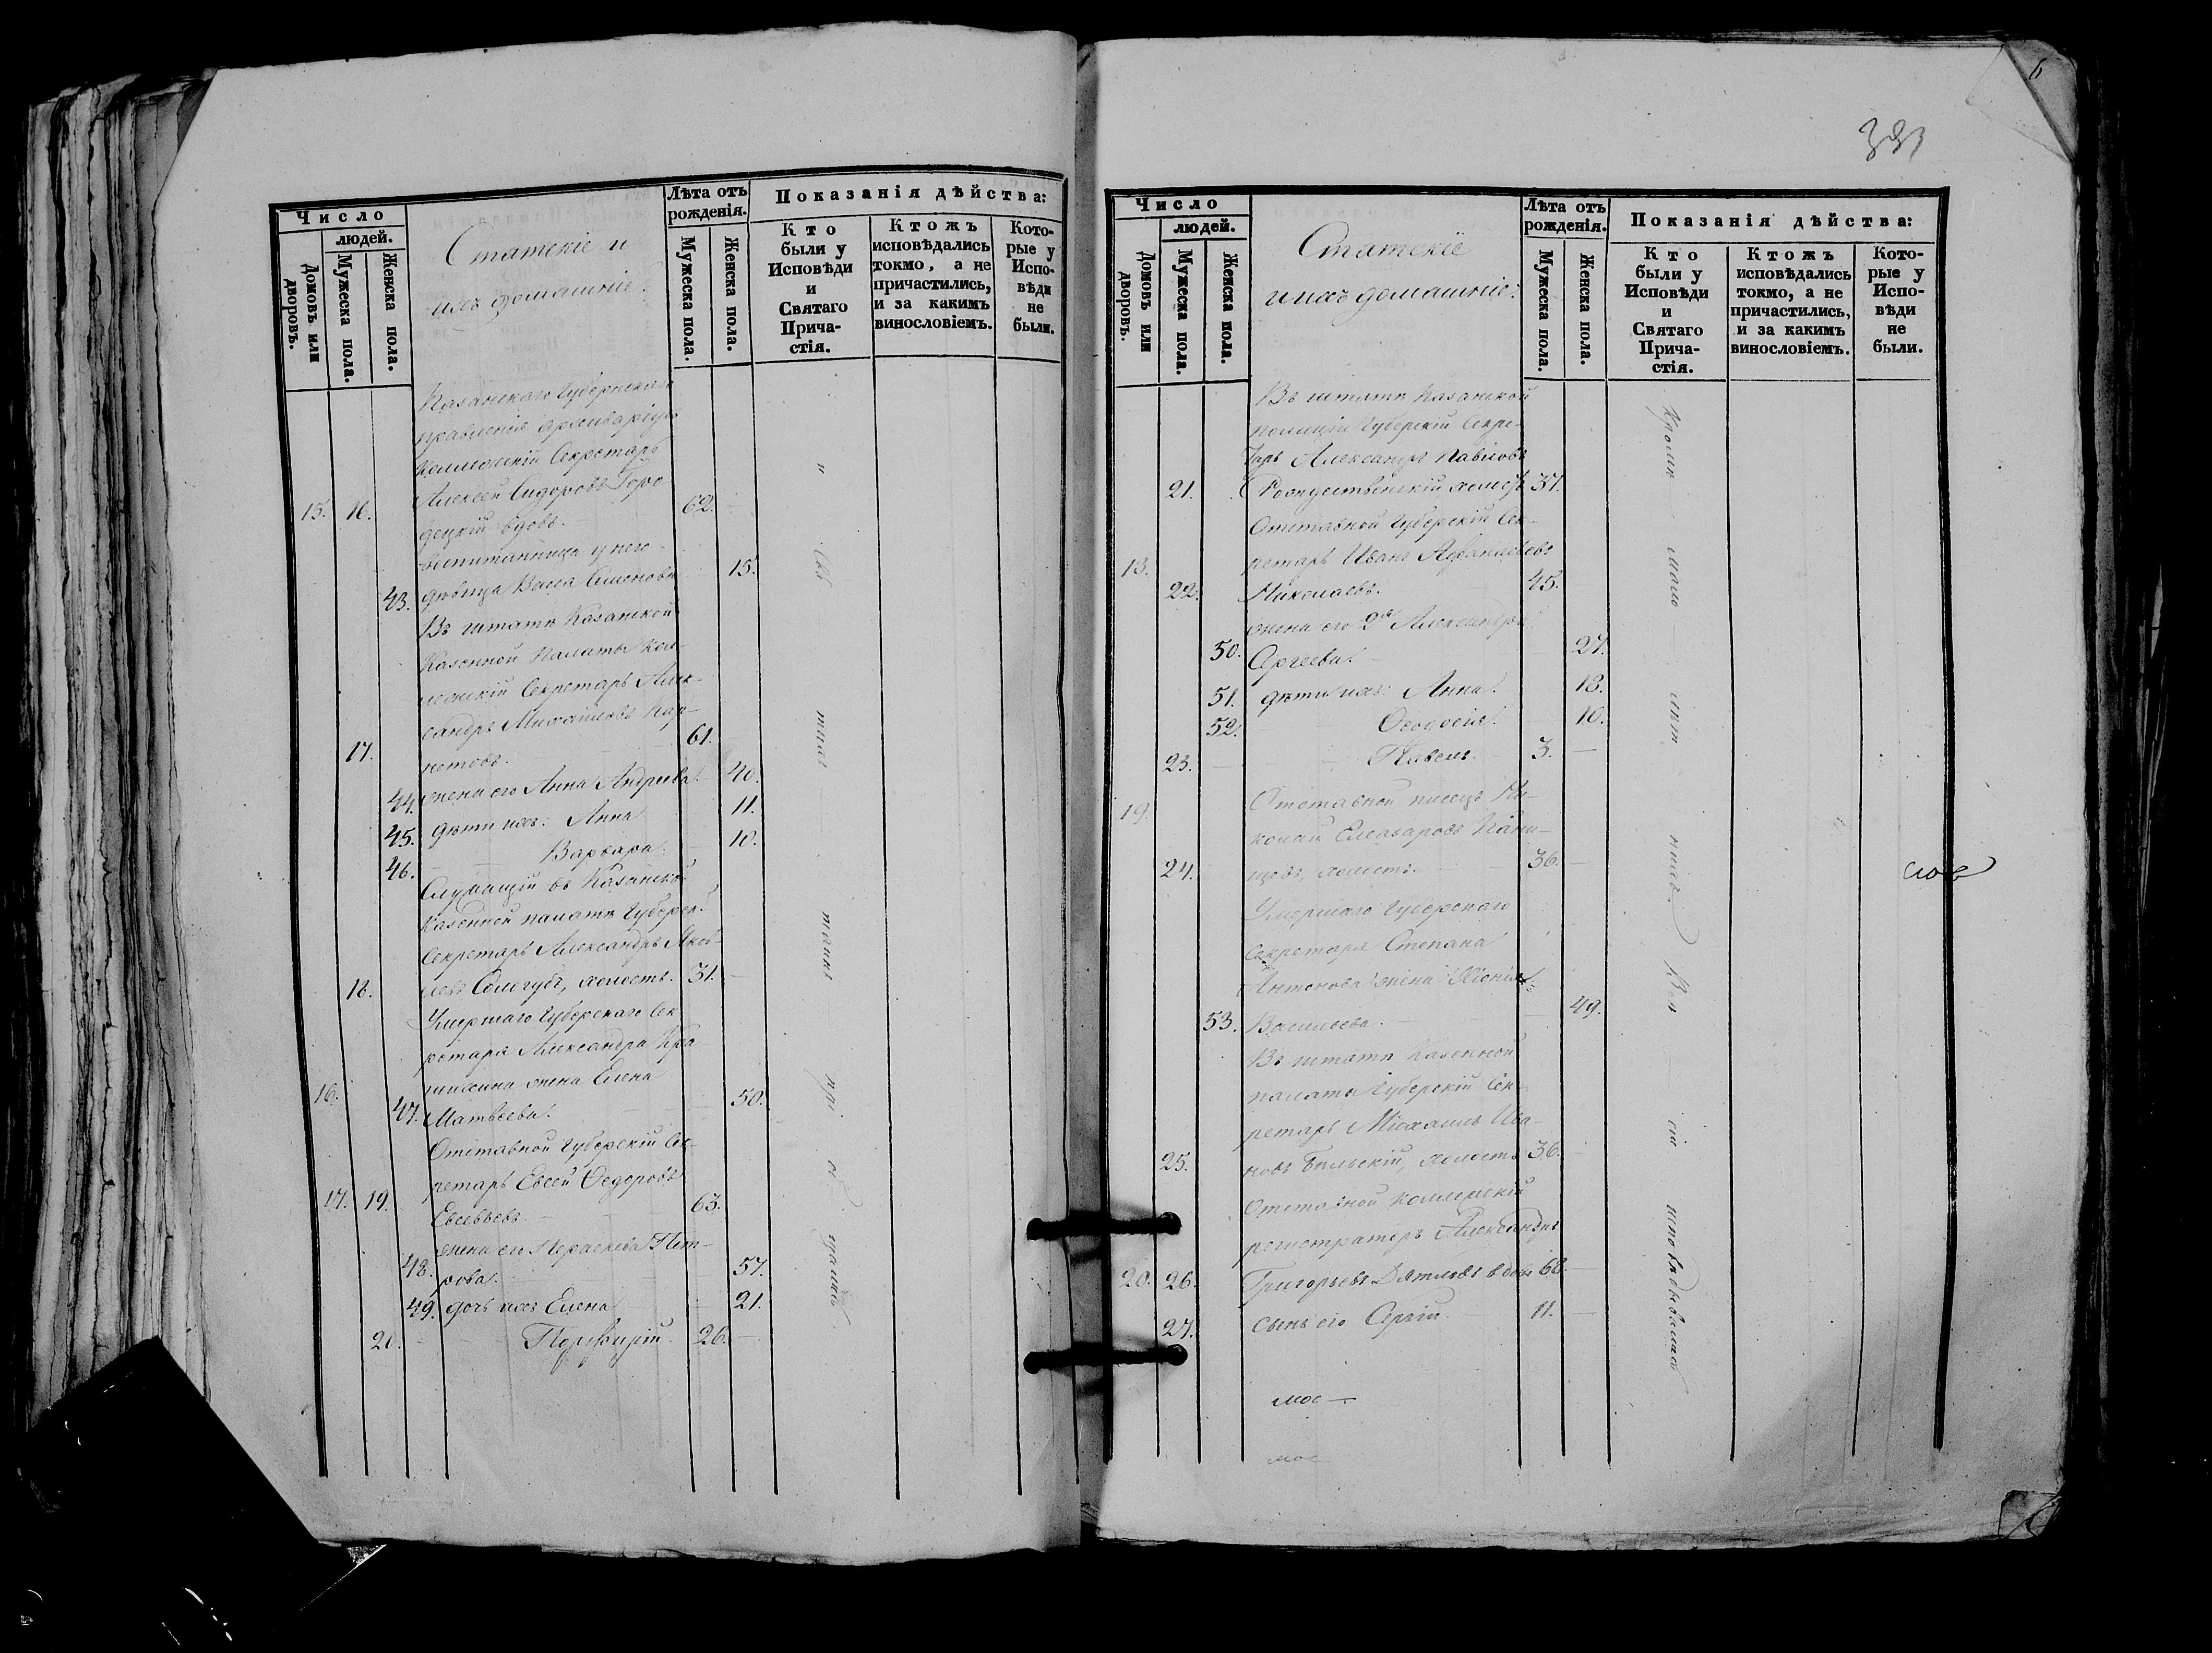 Число
людей.
Домовъ или дворовъ.
Мужеска пола.
Женска пола.
Статскіе и
ихъ домашніе:
Лѣта отъ рожденія.
Мужеска пола.
Женска пола.
Показанія дѣйства:
Кто были у Исповѣди и Святаго Причастія.
Ктожъ исповѣдались токмо, а не причастились, и за какимъ винословіемъ.
Которые у Исповѣди не были.
Казанскаго Губернскаго
правленія Архиваріусъ
Коллежскій Секретарь
15. 16. Алексей Сидоровъ Горо 62.
децкій вдовъ.
воспитанница у него
43. дѣвица Васса Семенова 15.
Въ штатѣ Казанской
Казенной Палаты Кол-
лежскій Секретарь Алек-
сандръ Михайловъ Кар-
17. 61.
44. жена его Анна Андреева. 40.
45. дѣти ихъ: Анна 11.
46. Варвара. 10.
Служащій въ Казанской
Казенной палатѣ Губерск.
Секретарь Александръ Яков-
18. левъ Сологубъ, холостъ. 31.
Умершаго Губерскаго Сек
ретаря Александра
16. жена Елена
47. Матвѣева. 50.
Отставной Губерскій Сек-
ретарь Евсей Ѳедоровъ
17. 19. Евсевьевъ. 63.
жена его Параскева Пет-
48. рова. 57.
49. дочь ихъ Елена 21.
20. Порфирій 26.
Число
людей.
Домовъ или дворовъ.
Мужеска пола.
Женска пола.
Статскіе
и ихъ домашніе:
Лѣта отъ рожденія.
Мужеска пола.
Женска пола.
Показанія дѣйства:
Кто были у Исповѣди и Святаго Причастія.
Ктожъ исповѣдались токмо, а не причастились, и за какимъ винословіемъ.
Которые у Исповѣди не были.
Въ штатѣ Казанской
полиціи Губерскій Секре-
тарь Александръ Павловъ
21. Рождественскій холостъ 37.
Отставной Губерскій Сек-
18. ретарь Иванъ Афанасьевъ
22. Николаевъ. 45.
жена его 2я Александра
50. Сергеева. 27.
51. дѣти ихъ: Анна. 13.
52. Ѳеодосія. 10.
23. Павелъ. 3.
19. Отставной писецъ Ни-
колай Елеазаровъ
24. холостъ. 36.
Умершаго Губерскаго
Секретаря Степана
Антонова жена Хіонія
53. Васильева. 49.
Въ штатѣ Казенной
палаты Губерскій Сек-
ретарь Михаилъ Ива-
25. новъ Бѣльскій, холостъ 36.
Отставной Коллежскій
регистраторъ Александръ
20. 26. Григорьевъ Дятловъ вдовъ 68.
27. сынъ его Сергій. 11.
Кромѣ мало лѣт нихъ. Всѣ сіи исповѣдывались